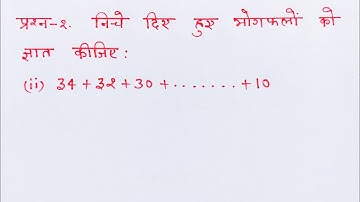 प्रश्न-२. निचे दिए हुए भोगफलों को
ज्ञात कीजिए:
(ii) 34 + 32 + 30 + ....... + 10